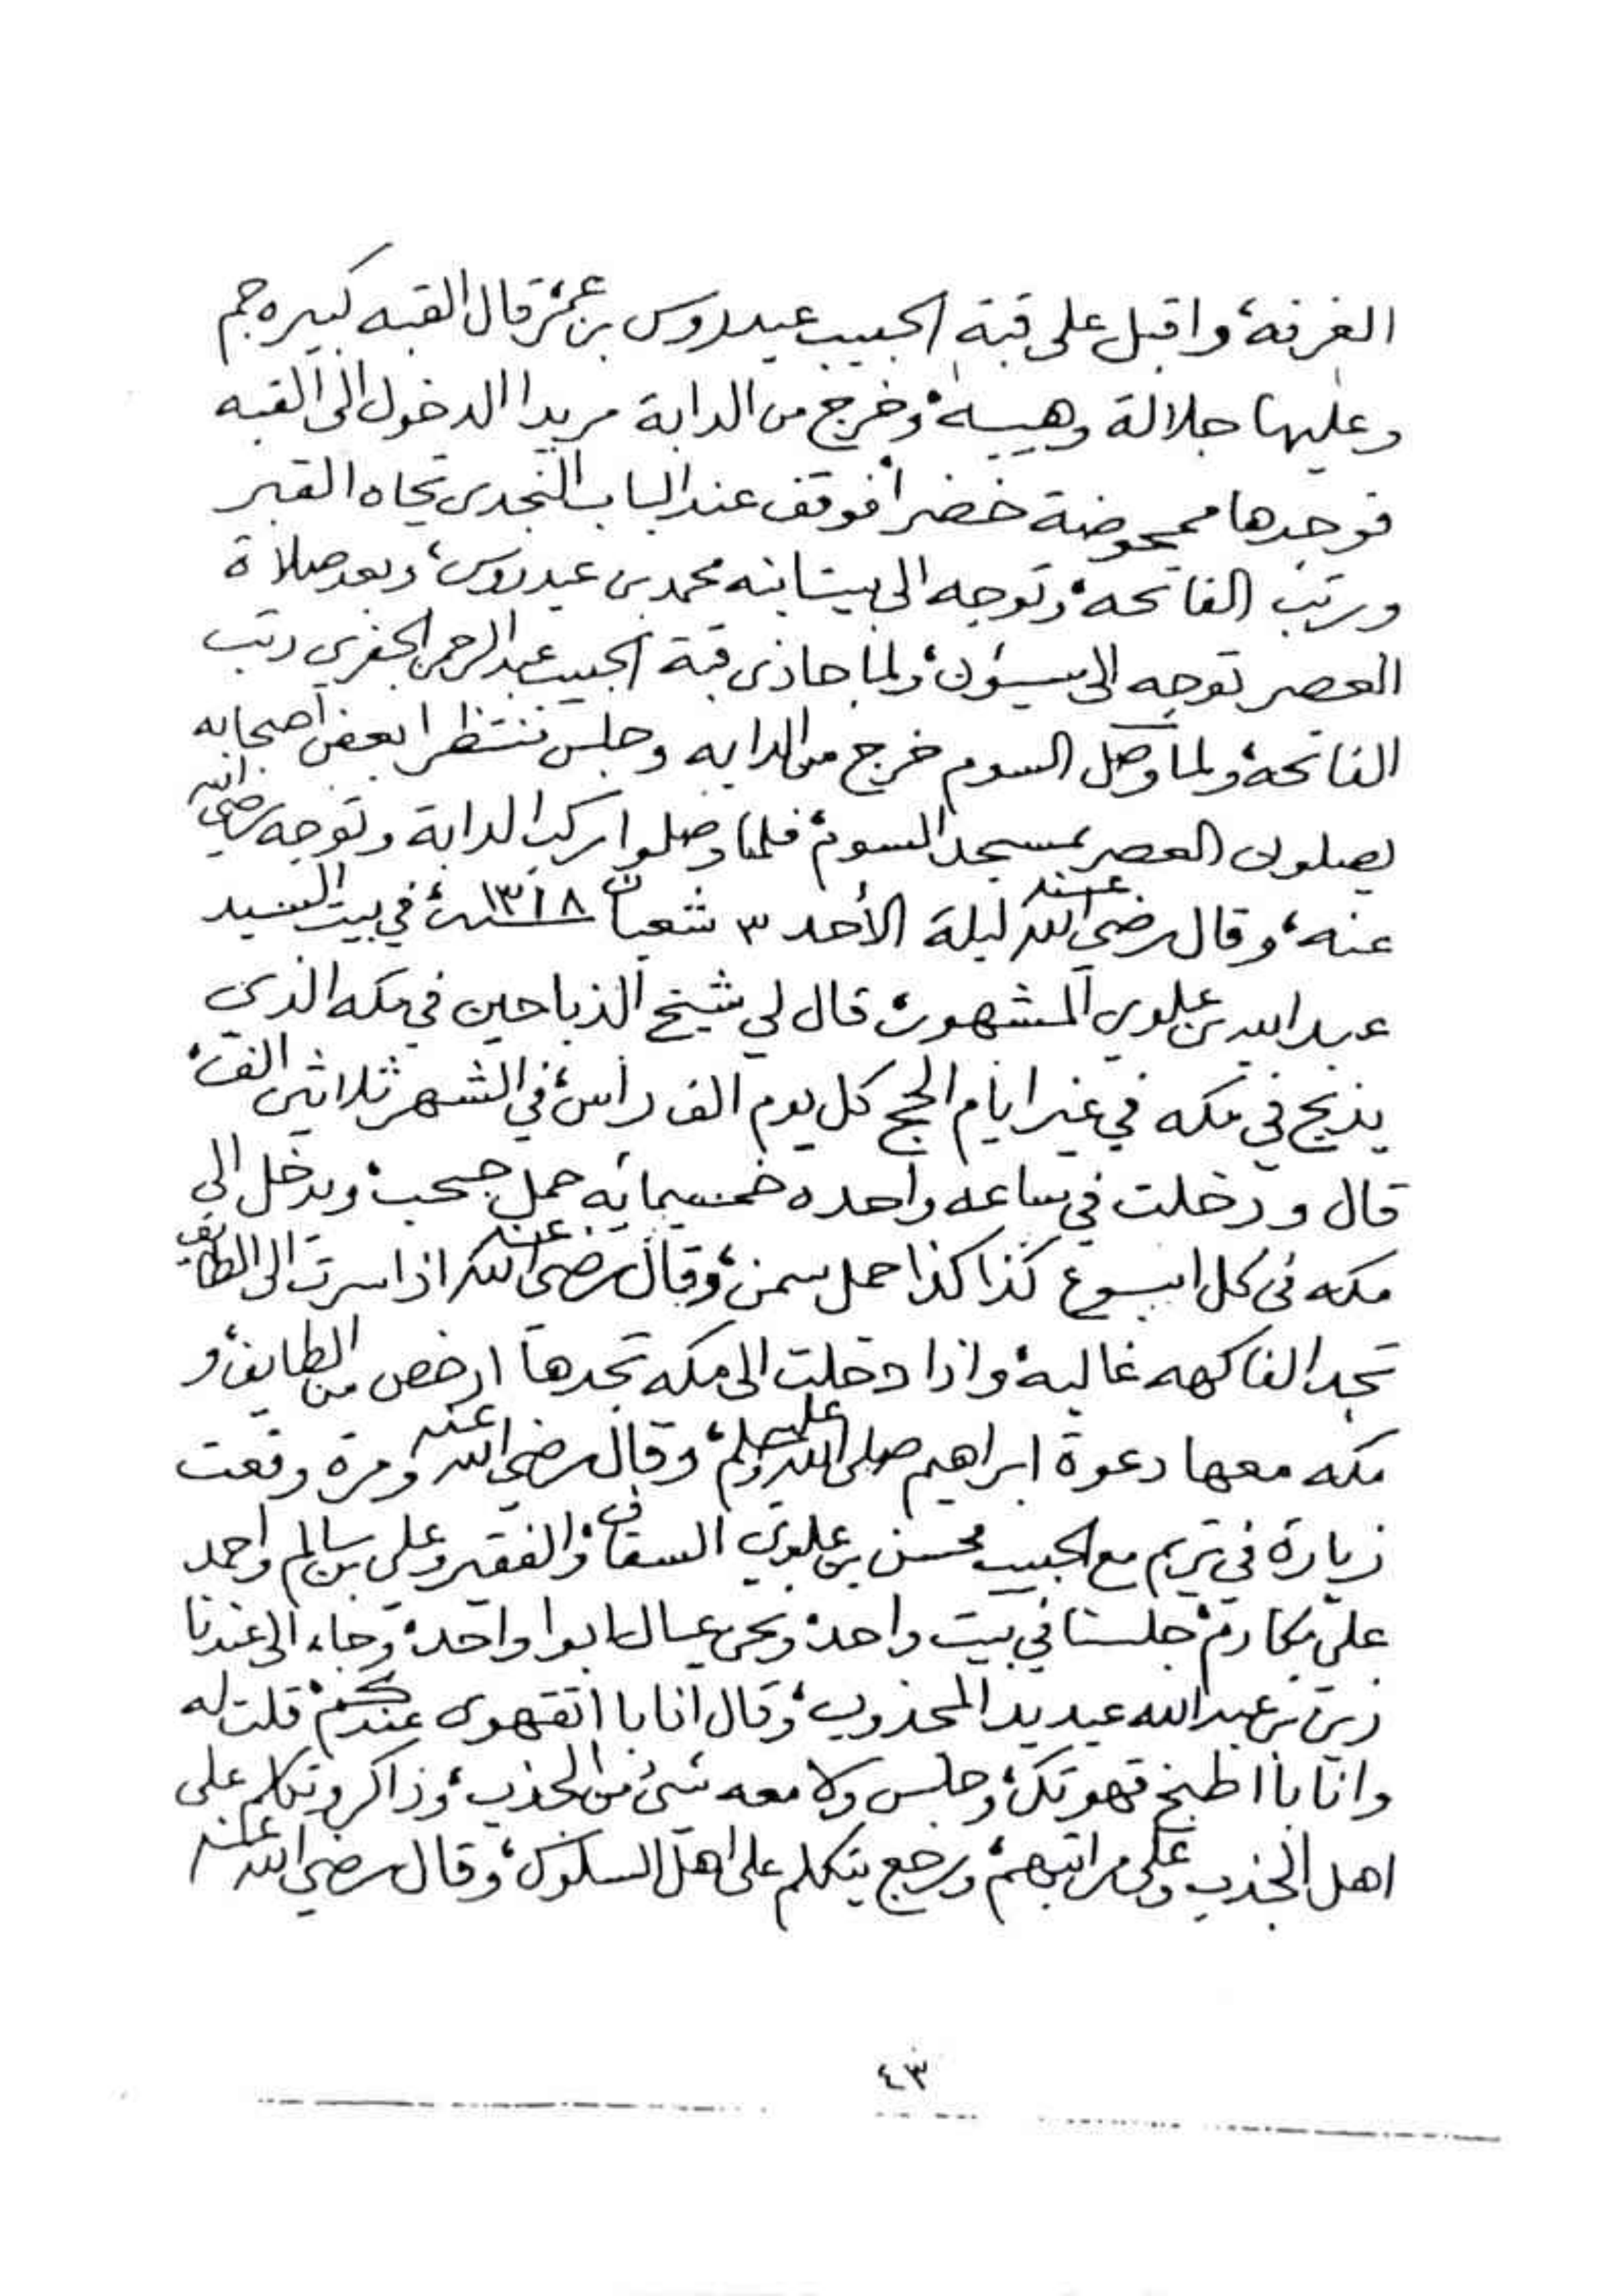 الغرفة، واقبل على قبة الحبيب عيدروس بن عمر، قال القبه كبيره جم
وعليها جلالة وهيبه، وخرج من الدابة مريدا الدخول الى القبه
فوجدها ممحوضة خضرا، فوقف عند الباب النجدي تجاه القبر
ورتب الفاتحه، وتوجه الى بيت ابنه محمد بن عيدروس، وبعد صلاة
العصر توجه الى سيؤن، ولما حاذى قبة الحبيب عبد الرحمن الجفري رتب
الفاتحه، ولما وصل السوم خرج من الدابه وجلس ننتظر ا بعض اصحابه
يصلون العصر بمسجد السوم، فلما وصلوا ركب الدابة وتوجه رضي الله
عنه، وقال رضي الله عنه ليلة الأحد ٣ شعبان سنة ١٣١٨، في بيت السيد
عبد الله بن علوي المشهور، قال لي شيخ الذباحين في مكه الذي
يذبح في مكه في غير ايام الحج كل يوم الف راس، في الشهر ثلاثين الف،
قال ودخلت في ساعه واحده خمسمايه حمل حبحب، ويدخل الى
مكه في كل اسبوع كذا كذا حمل سمن، وقال رضي الله عنه اذا سرت الى الطايف
تجد الفاكهه غاليه، واذا دخلت الى مكه تجدها ارخص من الطايف، و
مكه معها دعوة ابراهيم صلى الله عليه وسلم، وقال رضي الله عنه ومرة وقعت
زيارة في تريم مع الحبيب محسن بن علوي السقاف، والفقير وعلي بن سالم واحمد
علي مكارم، جلسنا في بيت واحد، ونحن عيال ابوا واحد، وجاء الى عندنا
زين بن عبد الله عيديد المجذوب، وقال انا با اتقهوى عندكم، قلت له
وانا با اطبخ قهوتك، وجلس ولا معه شئ من الجذب، وذاكر وتكلم على
اهل الجذب وعلى مراتبهم، ورجع يتكلم على اهل السلوك، وقال رضي الله عنه
٤٣